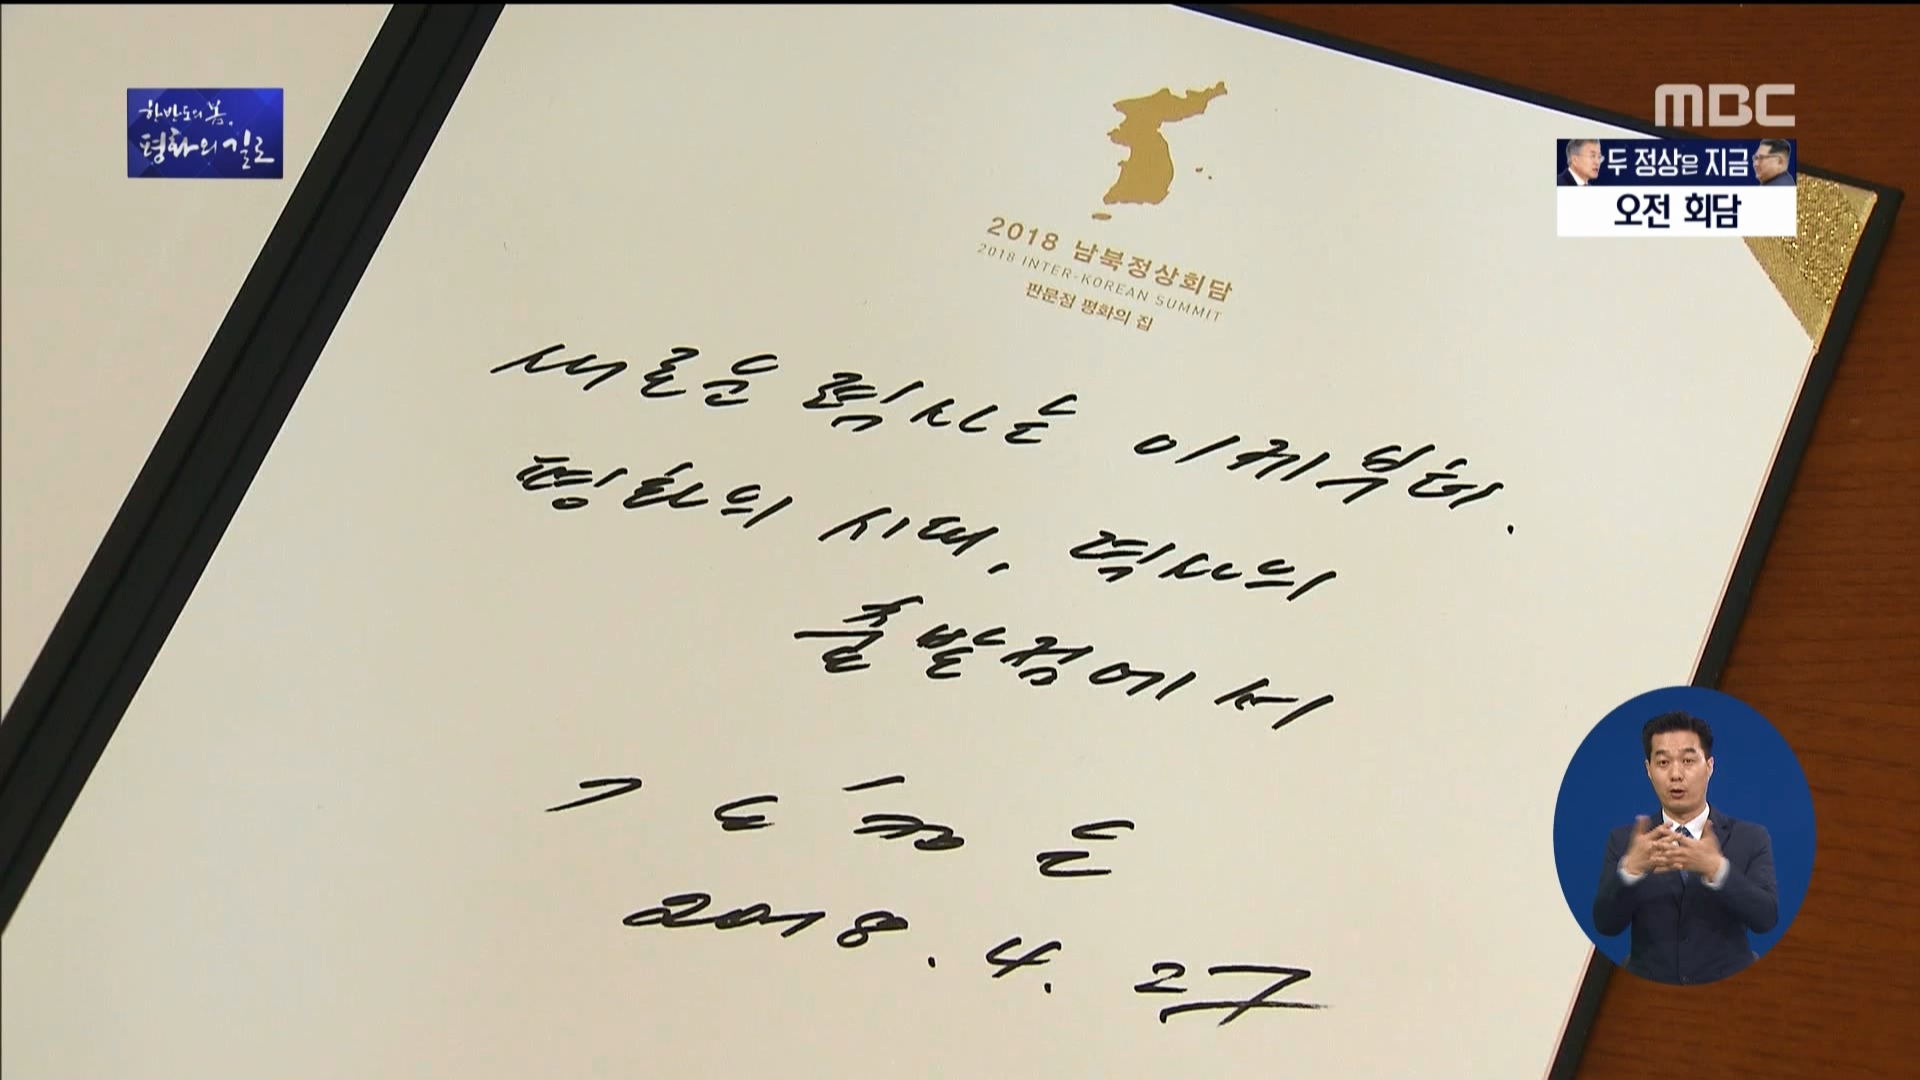 한반도의 봄,
평화의 길로
MBC
두 정상은 지금
오전 회담
2018 남북정상회담
2018 INTER-KOREAN SUMMIT
판문점 평화의 집
새로운 력사는 이제부터.
평화의 시대, 력사의
출발점에서
김정은
2018. 4. 27